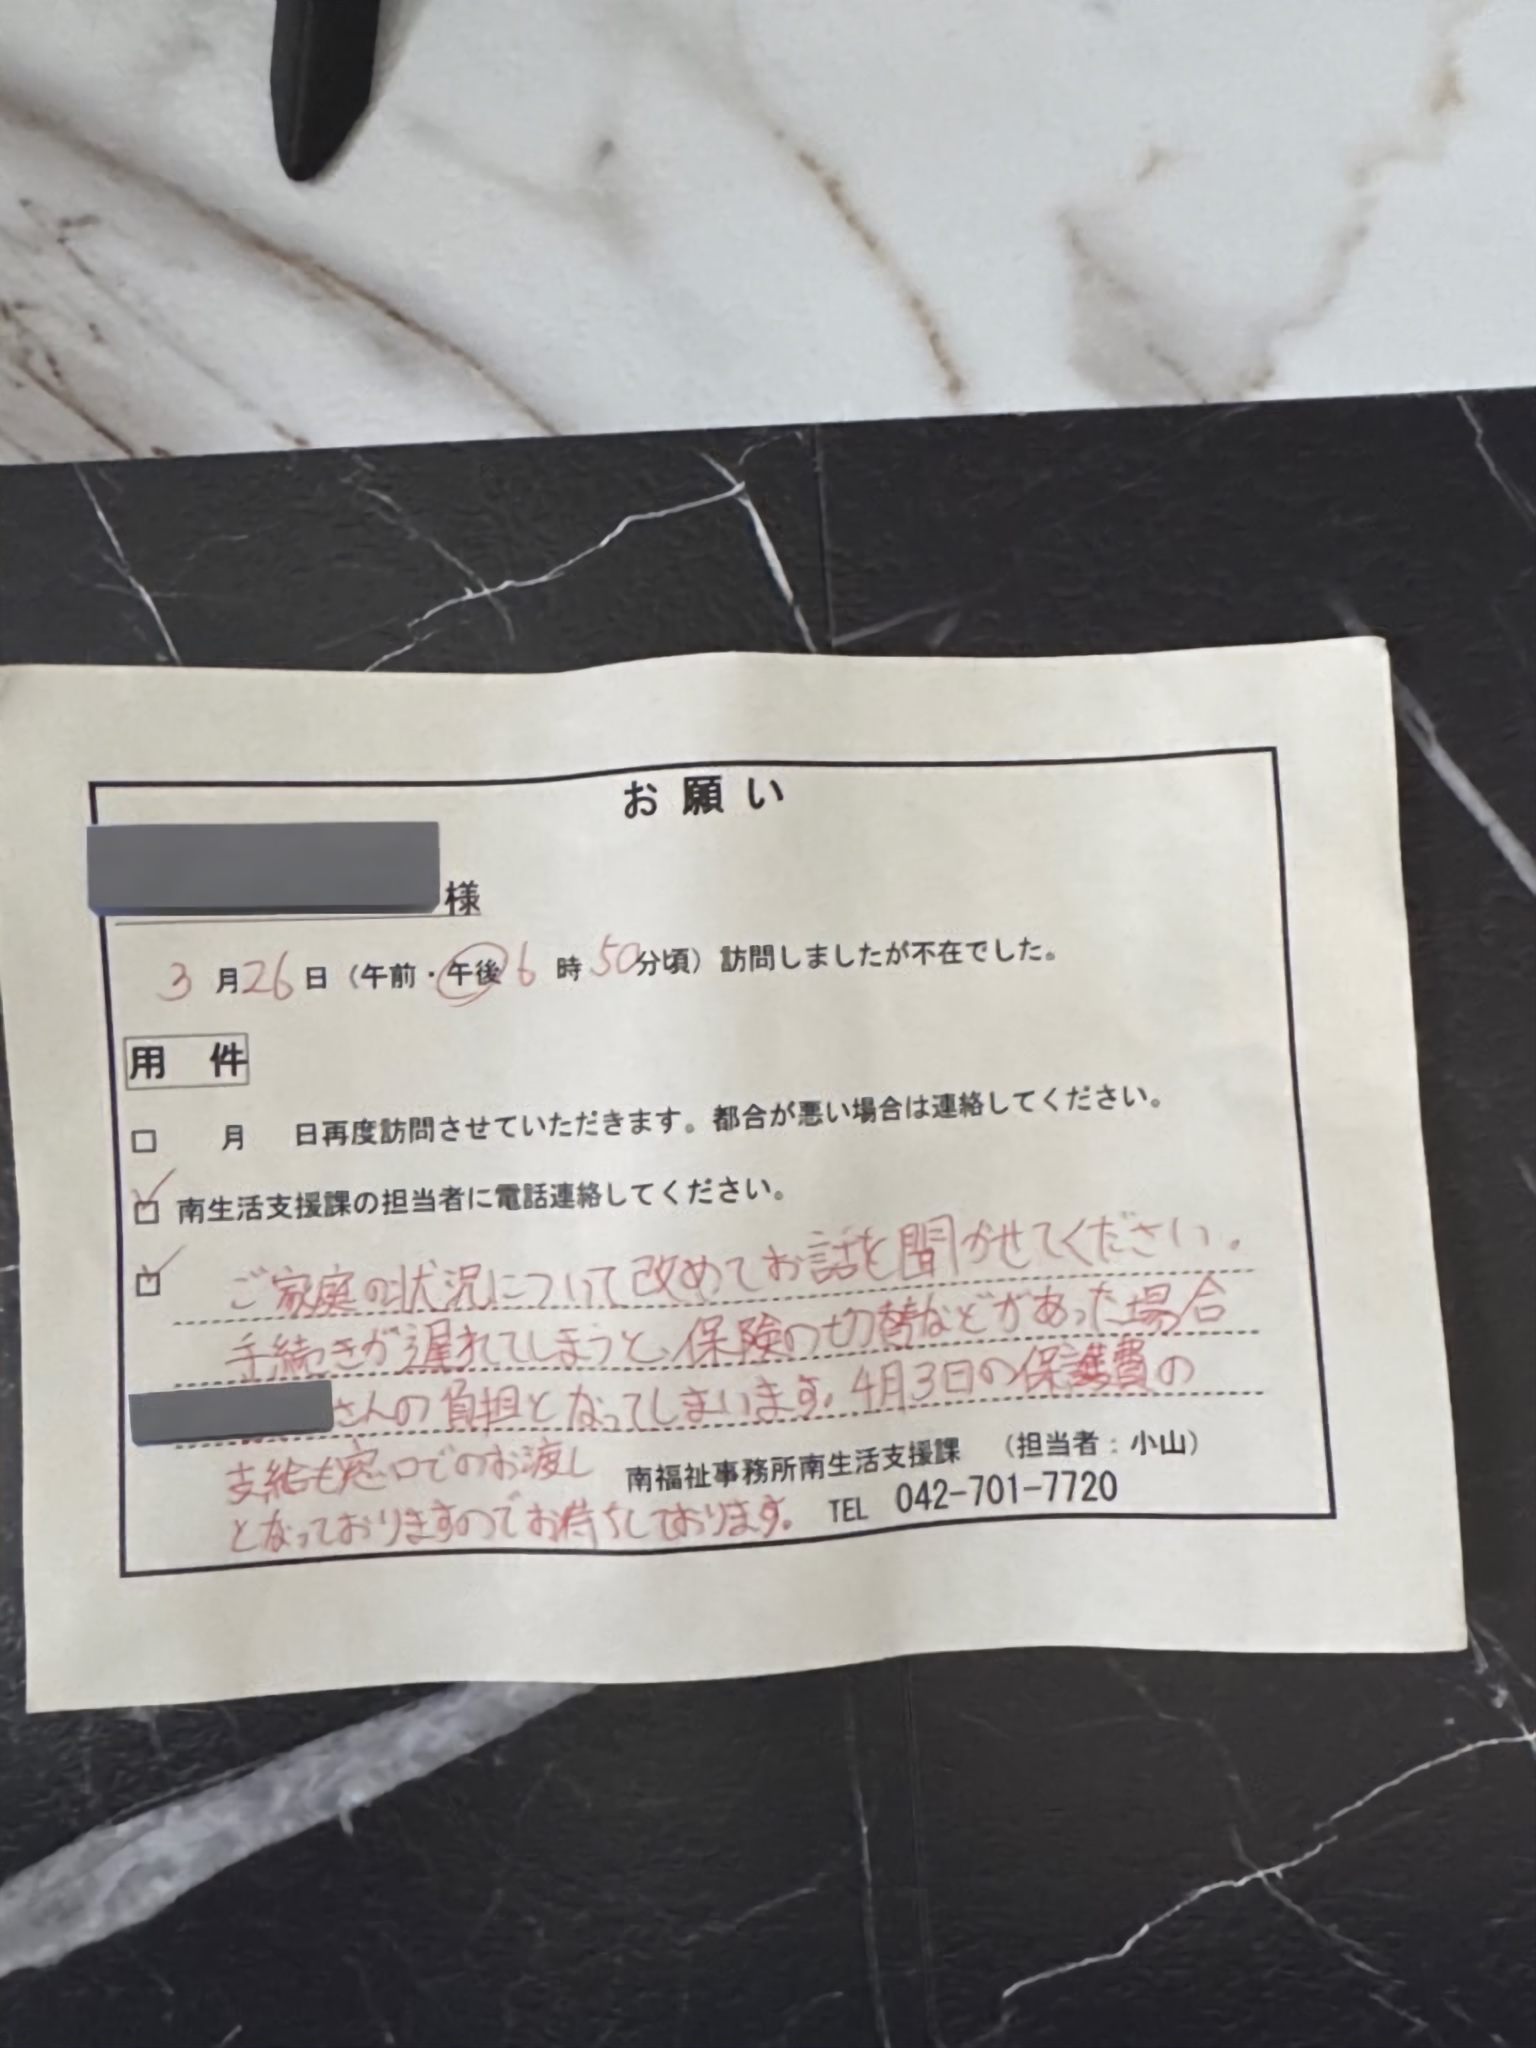 お願い
様
3月26日(午前・午後6時50分頃)訪問しましたが不在でした。
用件
□ 月 日再度訪問させていただきます。都合が悪い場合は連絡してください。
☑ 南生活支援課の担当者に電話連絡してください。
☑ ご家庭の状況について改めてお話を聞かせてください。
手続きが遅れてしまうと、保険の切替などがあった場合
さんの負担となってしまいます。4月3日の保護費の
支給も窓口でのお渡し
となっておりますのでお待ちしております。
南福祉事務所南生活支援課 (担当者:小山)
TEL 042-701-7720